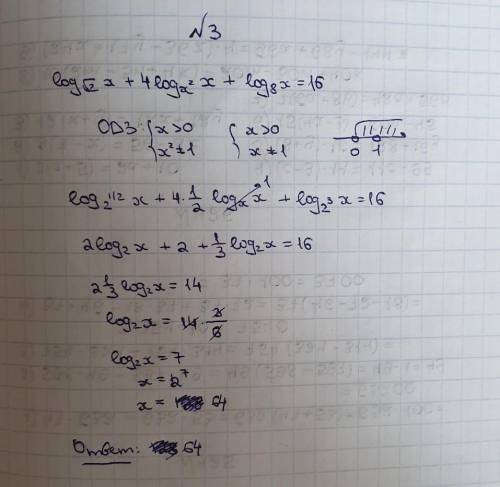 №3
log_√2 x + 4log_x² x + log_8 x = 16
ОДЗ: { x>0 { x>0
x²≠1 x≠1
0 1
log_2^1/2 x + 4·1/2 log_x x 1 + log_2³ x = 16
2log_2 x + 2 + 1/3 log_2 x = 16
2 1/3 log_2 x = 14
log_2 x = 14 ·
log_2 x = 7
x = 2^7
x = 64
Ответ: 64